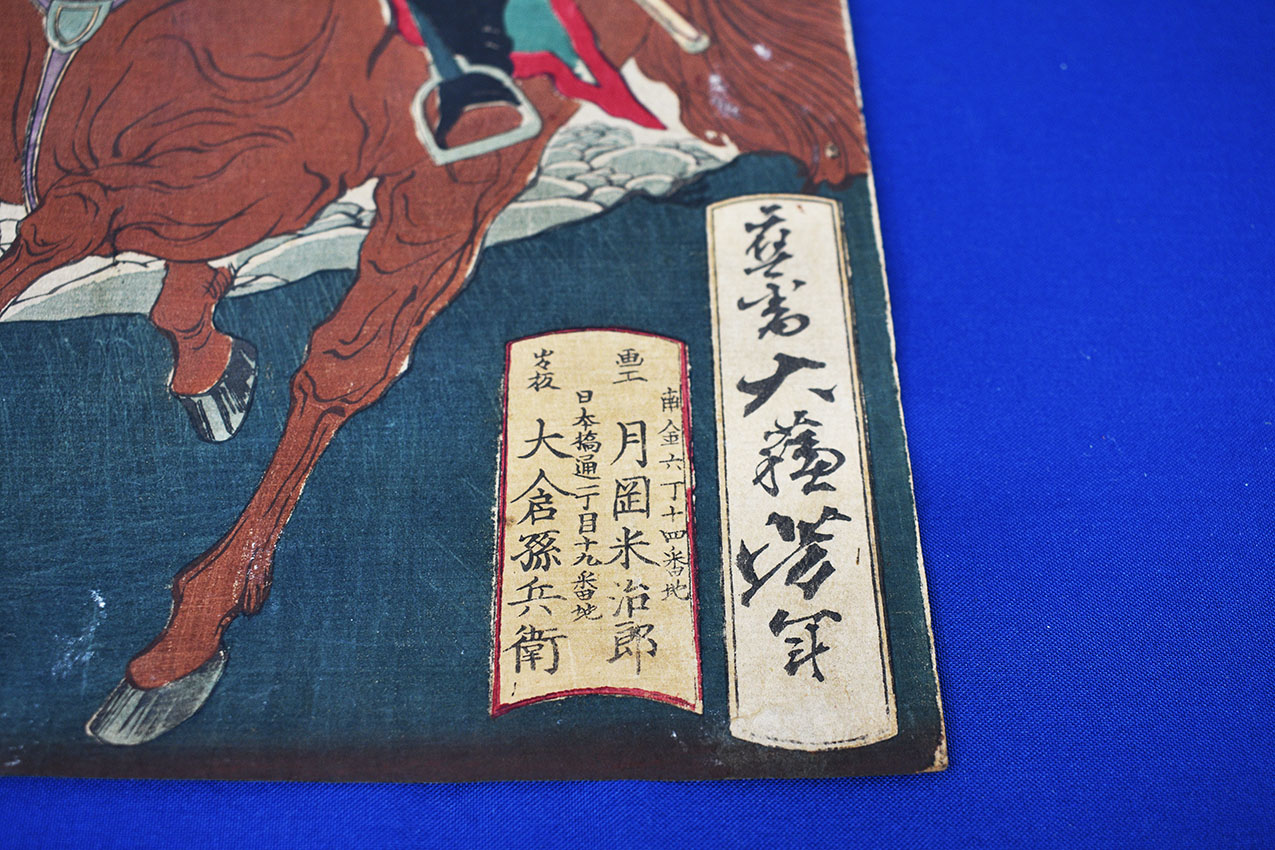 應需 大蘇芳年
南金六丁十四番地
画工 月岡米治郎
日本橋通一丁目十九番地
出板 大倉孫兵衛